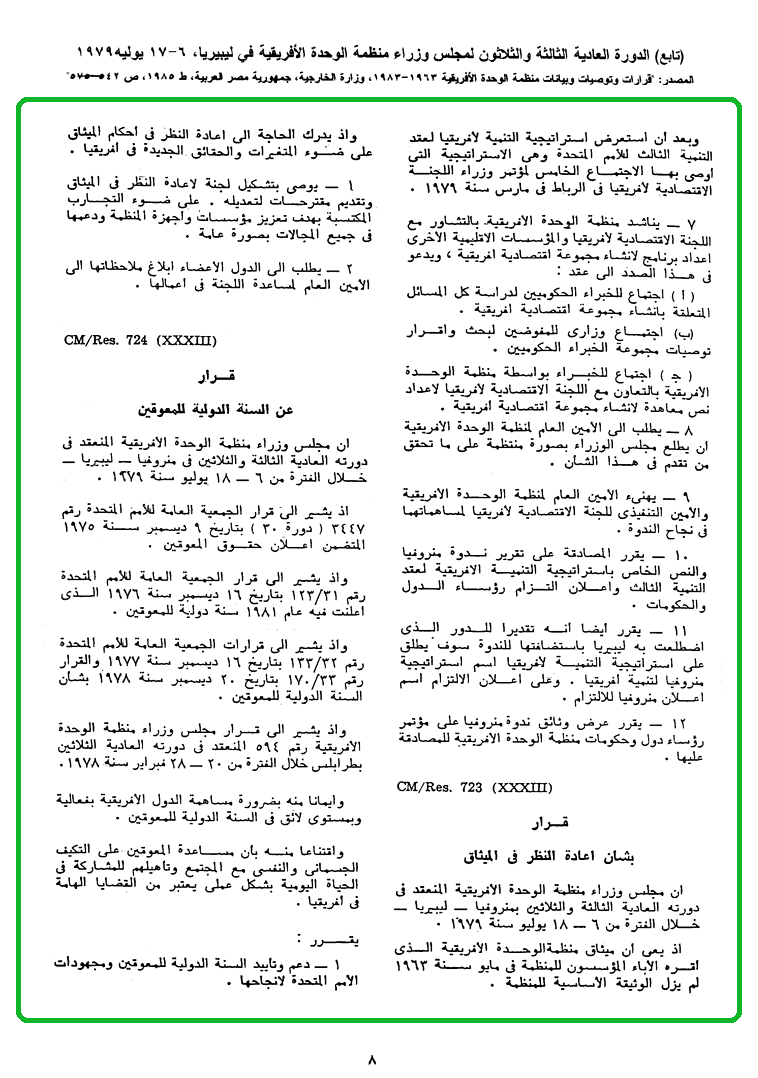 (تابع) الدورة العادية الثالثة والثلاثون لمجلس وزراء منظمة الوحدة الأفريقية في ليبيريا، ٦-١٧ يوليه ١٩٧٩
المصدر: "قرارات وتوصيات وبيانات منظمة الوحدة الأفريقية ١٩٦٣-١٩٨٣، وزارة الخارجية، جمهورية مصر العربية، ط ١٩٨٥، ص ٥٤٢-٥٧٥"
وبعد أن استعرض استراتيجية التنمية لأفريقيا لعقد
التنمية الثالث للأمم المتحدة وهى الاستراتيجية التى
أوصى بها الاجتماع الخامس لمؤتمر وزراء اللجنة
الاقتصادية لأفريقيا فى الرباط فى مارس سنة ١٩٧٩ .
٧ — يناشد منظمة الوحدة الأفريقية بالتشاور مع
اللجنة الاقتصادية لأفريقيا والمؤسسات الاقليمية الأخرى
اعداد برنامج لانشاء مجموعة اقتصادية افريقية ، ويدعو
فى هذا الصدد الى عقد :
( أ ) اجتماع للخبراء الحكوميين لدراسة كل المسائل
المتعلقة بانشاء مجموعة اقتصادية افريقية .
(ب) اجتماع وزارى للمفوضين لبحث واقرار
توصيات مجموعة الخبراء الحكوميين .
( ج ) اجتماع للخبراء بواسطة منظمة الوحدة
الأفريقية بالتعاون مع اللجنة الاقتصادية لأفريقيا لاعداد
نص معاهدة لانشاء مجموعة اقتصادية افريقية .
٨ — يطلب الى الأمين العام لمنظمة الوحدة الأفريقية
أن يطلع مجلس الوزراء بصورة منتظمة على ما تحقق
من تقدم فى هذا الشأن .
٩ — يهنىء الأمين العام لمنظمة الوحدة الأفريقية
والأمين التنفيذى للجنة الاقتصادية لأفريقيا لمساهماتهما
فى نجاح الندوة .
١٠ — يقرر المصادقة على تقرير ندوة منروفيا
والنص الخاص باستراتيجية التنمية الافريقية لعقد
التنمية الثالث واعلان التزام رؤساء الدول
والحكومات .
١١ — يقرر أيضا أنه تقديرا للدور الذى
اضطلعت به ليبيريا باستضافتها للندوة سوف يطلق
على استراتيجية التنمية لأفريقيا اسم استراتيجية
منروفيا لتنمية أفريقيا . وعلى اعلان الالتزام اسم
اعلان منروفيا للالتزام .
١٢ — يقرر عرض وثائق ندوة منروفيا على مؤتمر
رؤساء دول وحكومات منظمة الوحدة الأفريقية للمصادقة
عليها .
CM/Res. 723 (XXXIII)
قرار
بشأن اعادة النظر فى الميثاق
ان مجلس وزراء منظمة الوحدة الافريقية المنعقد فى
دورته العادية الثالثة والثلاثين بمنروفيا — ليبيريا —
خلال الفترة من ٦ — ١٨ يوليو سنة ١٩٧٩ .
اذ يعى أن ميثاق منظمة الوحدة الأفريقية الذى
أقره الآباء المؤسسون للمنظمة فى مايو سنة ١٩٦٣
لم يزل الوثيقة الأساسية للمنظمة .
واذ يدرك الحاجة الى اعادة النظر فى أحكام الميثاق
على ضوء المتغيرات والحقائق الجديدة فى أفريقيا .
١ — يوصى بتشكيل لجنة لاعادة النظر فى الميثاق
وتقديم مقترحات لتعديله . على ضوء التجارب
المكتسبة بهدف تعزيز مؤسسات وأجهزة المنظمة ودعمها
فى جميع المجالات بصورة عامة .
٢ — يطلب الى الدول الأعضاء ابلاغ ملاحظاتها الى
الأمين العام لمساعدة اللجنة فى أعمالها .
CM/Res. 724 (XXXIII)
قرار
عن السنة الدولية للمعوقين
ان مجلس وزراء منظمة الوحدة الافريقية المنعقد فى
دورته العادية الثالثة والثلاثين فى منروفيا — ليبيريا —
خلال الفترة من ٦ — ١٨ يوليو سنة ١٩٧٩ .
اذ يشير الى قرار الجمعية العامة للأمم المتحدة رقم
٣٤٤٧ ( دورة ٣٠ ) بتاريخ ٩ ديسمبر سنة ١٩٧٥
المتضمن اعلان حقوق المعوقين .
واذ يشير الى قرار الجمعية العامة للأمم المتحدة
رقم ١٢٣/٣١ بتاريخ ١٦ ديسمبر سنة ١٩٧٦ الذى
أعلنت فيه عام ١٩٨١ سنة دولية للمعوقين .
واذ يشير الى قرارات الجمعية العامة للأمم المتحدة
رقم ١٣٣/٣٢ بتاريخ ١٦ ديسمبر سنة ١٩٧٧ والقرار
رقم ١٧٠/٣٣ بتاريخ ٢٠ ديسمبر سنة ١٩٧٨ بشأن
السنة الدولية للمعوقين .
واذ يشير الى قرار مجلس وزراء منظمة الوحدة
الأفريقية رقم ٥٩٤ المنعقد فى دورته العادية الثلاثين
بطرابلس خلال الفترة من ٢٠ — ٢٨ فبراير سنة ١٩٧٨.
وايمانا منه بضرورة مساهمة الدول الأفريقية بفعالية
وبمستوى لائق فى السنة الدولية للمعوقين .
واقتناعا منه بأن مساعدة المعوقين على التكيف
الجسمانى والنفسى مع المجتمع وتأهيلهم للمشاركة فى
الحياة اليومية بشكل عملى يعتبر من القضايا الهامة
فى أفريقيا .
يقرر :
١ — دعم وتأييد السنة الدولية للمعوقين ومجهودات
الأمم المتحدة لانجاحها .
٨